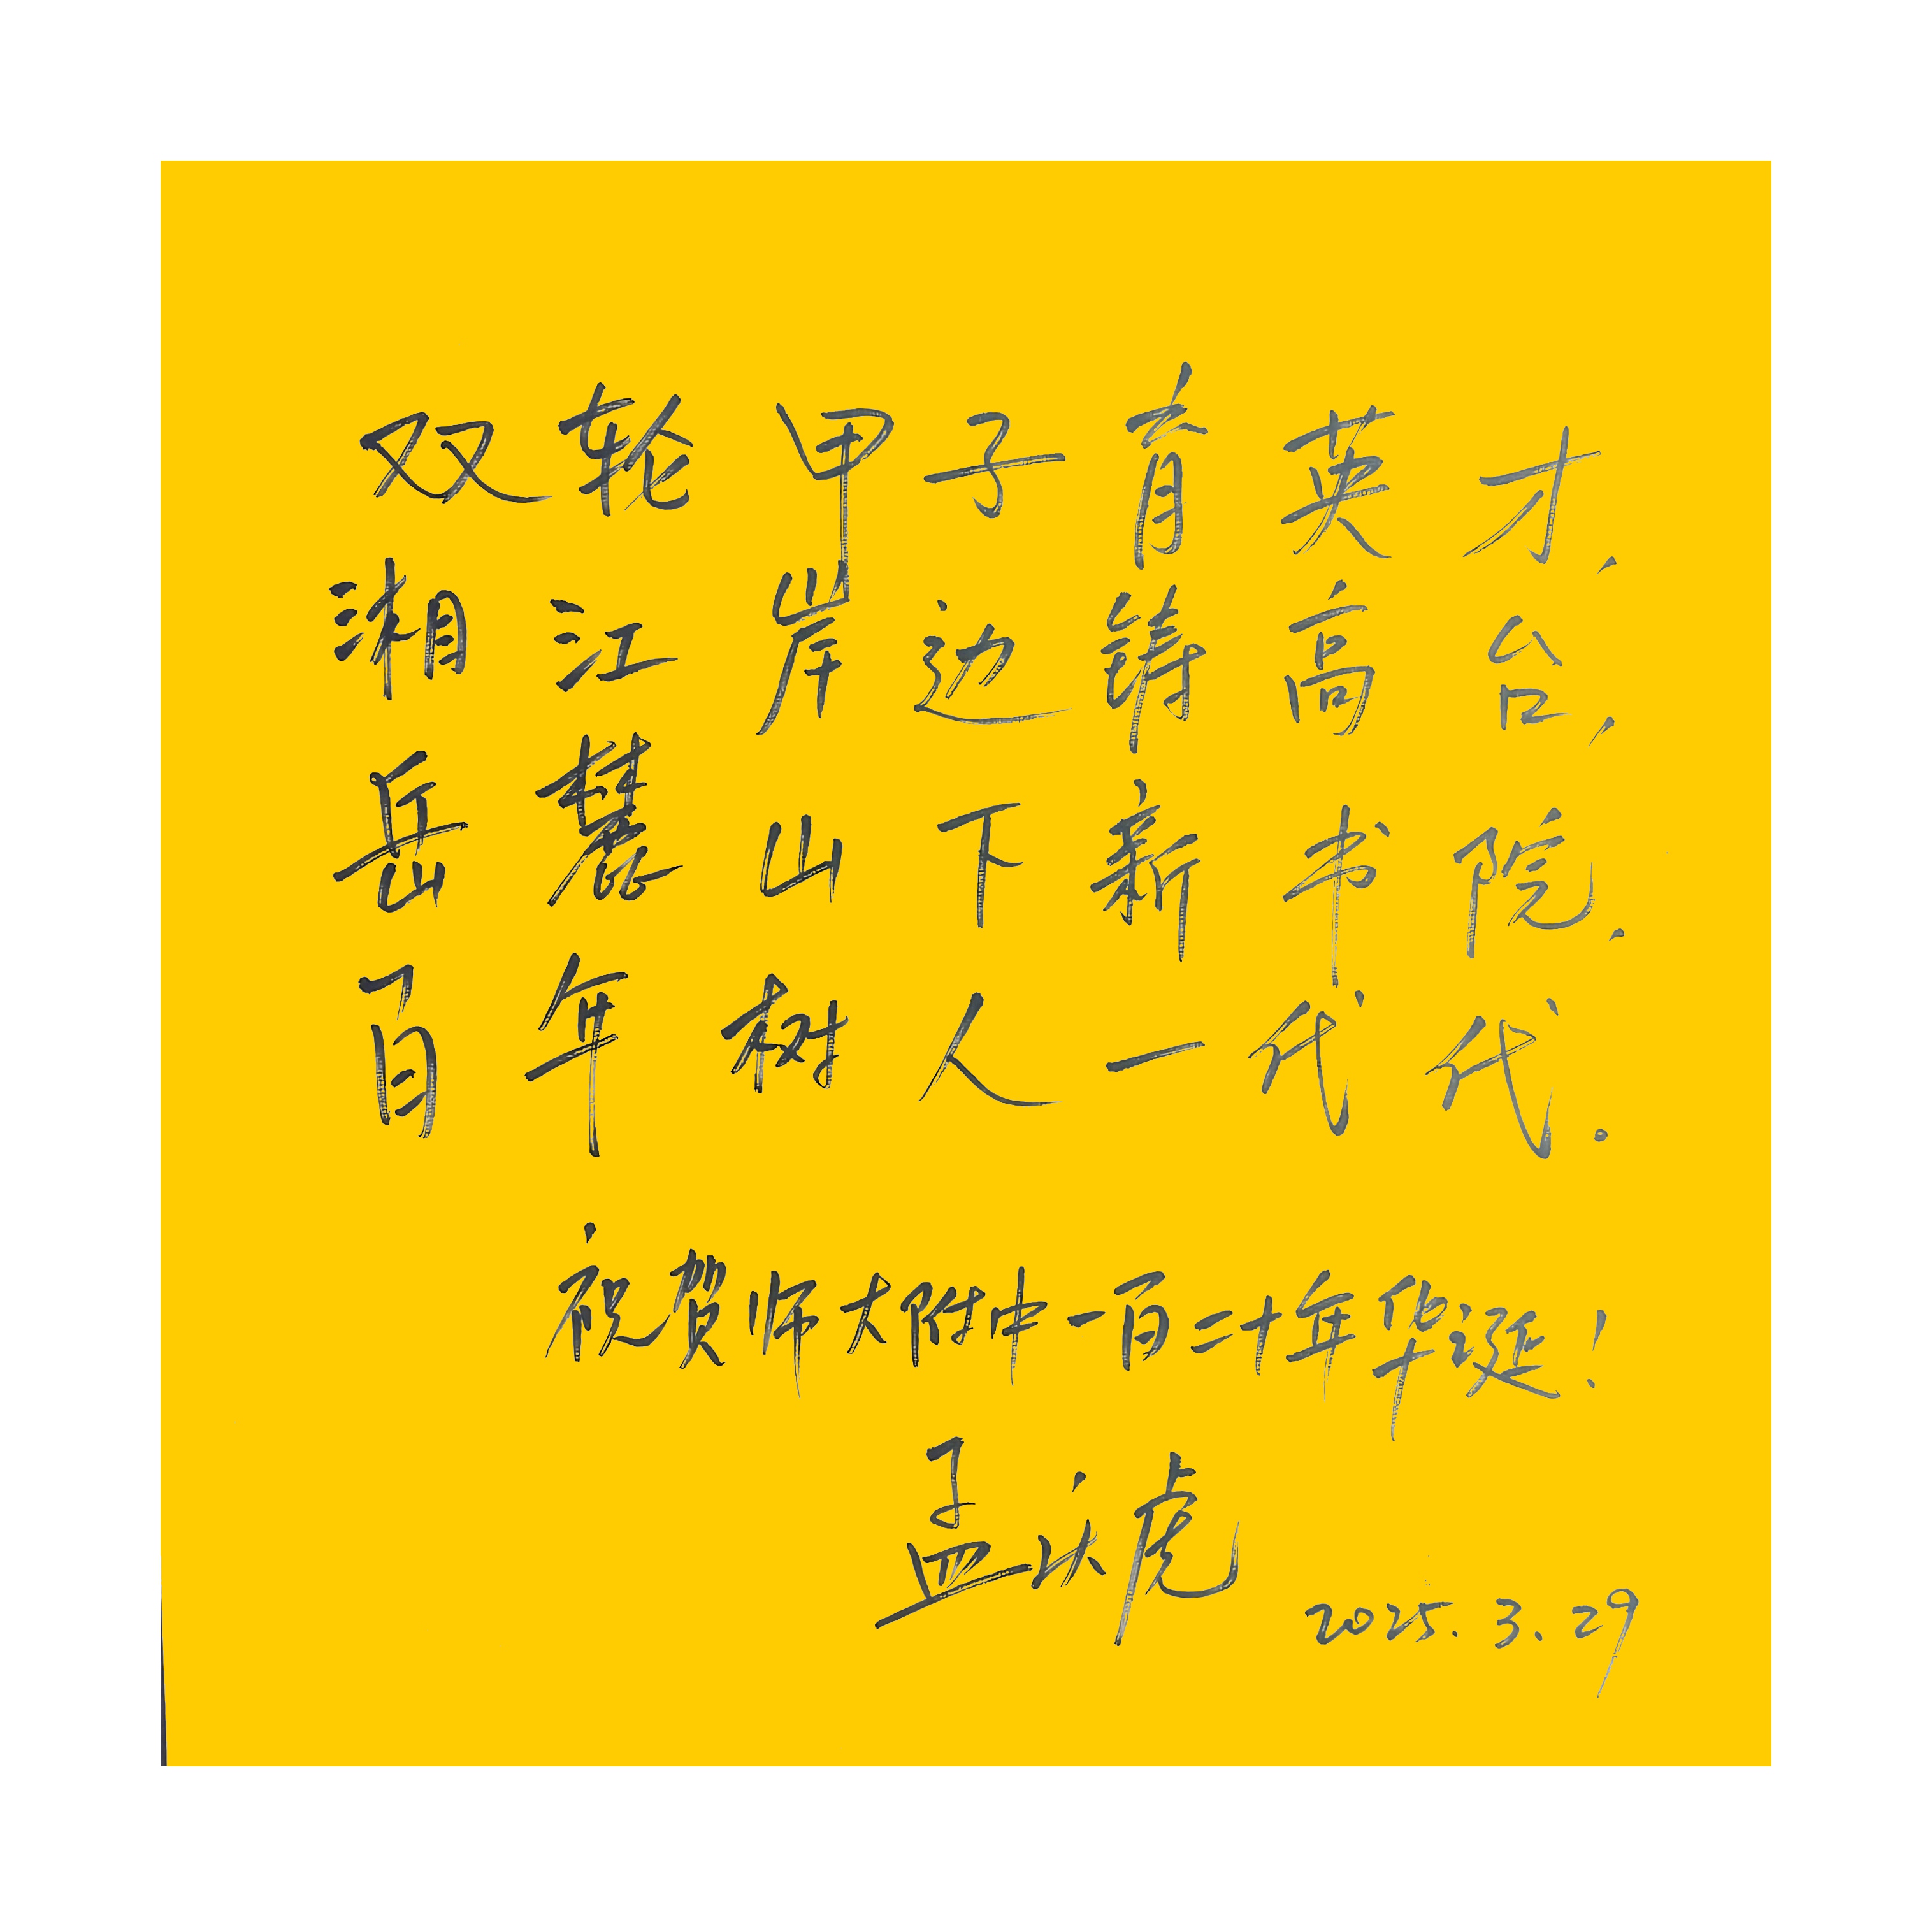 双轮甲子育英才，
湘江岸边铸高台，
岳麓山下新书院，
百年树人一代代。
祝贺师大附中一百二十年华诞！
孟永虎
2025.3.29